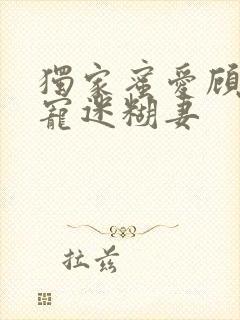 獨家蜜愛顧
寵迷糊妻
拉茲